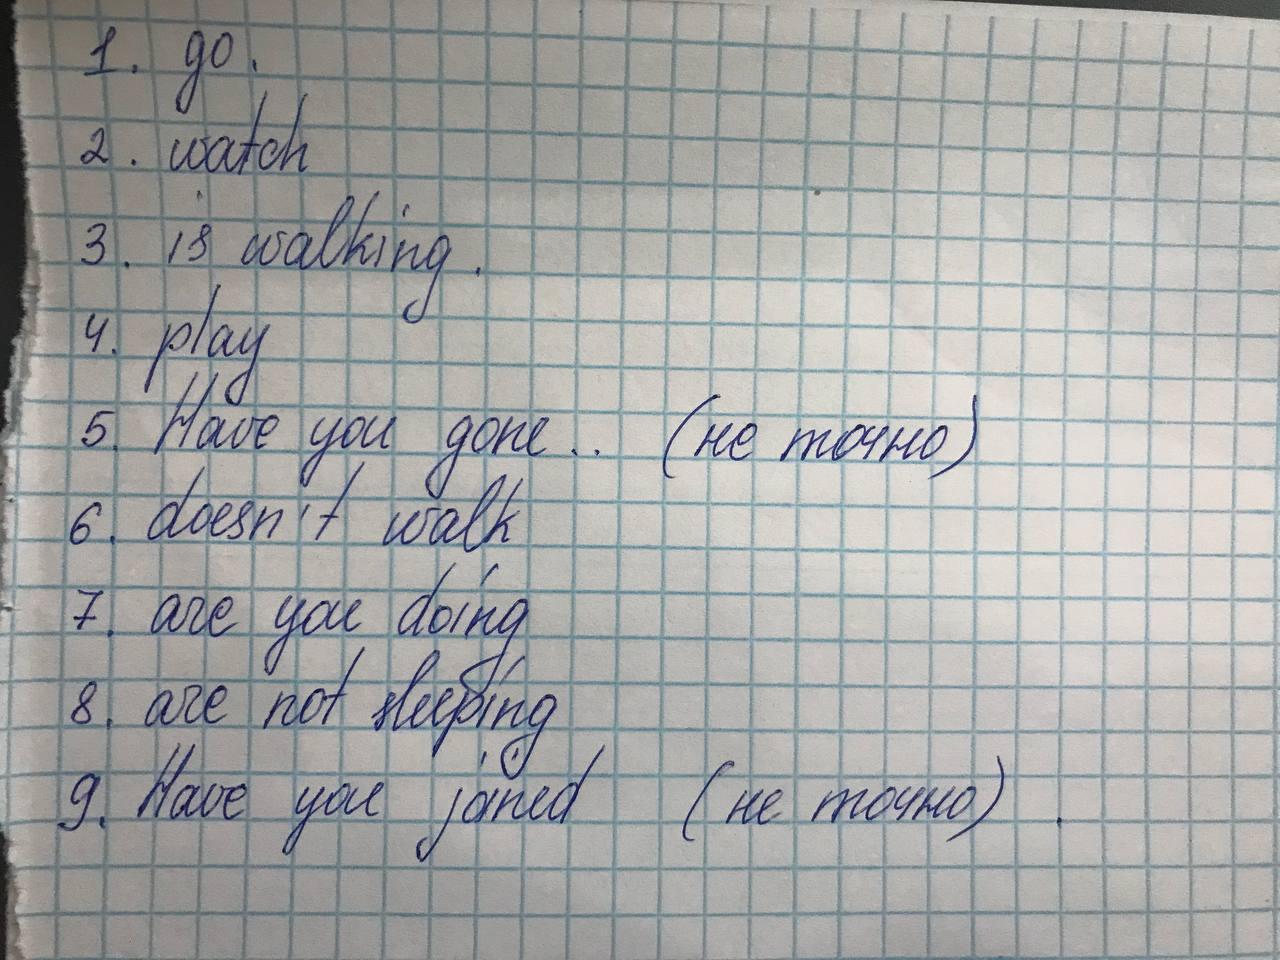 1. go.
2. watch
3. is walking.
4. play
5. Have you gone.. (не точно)
6. doesn't walk
7. are you doing
8. are not sleeping
9. Have you joined (не точно).